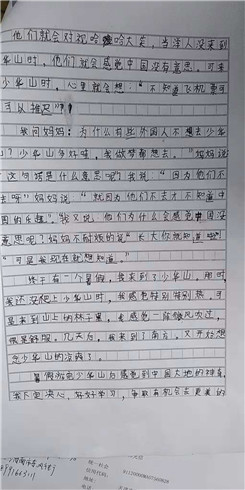 他们就会对视哈哈哈大笑，当洋人没来到
少华山时，他们就会感觉中国没有意思。可来
少华山时，心里就会想："不知道飞机票可
可以推迟
我问妈妈：为什么有些外国人不想去少华
山？少华山多好呀，我做梦都想去。"妈妈说
这句话是什么意思呢？我说："因为他们不
去呀"妈妈说："就因为他们不去才不知道中
国的
我又说：他们为什么会感觉中国没
意思呢？妈妈不耐烦的说"长大你就知道啦
"可是我现在就想知道。"
终于有一个暑假，我来到了少华山。那时
我还没爬上少华山时，我感觉特别特别热，可
是来到山上的林子里，我感觉一阵微风吹过，
很是舒服，几天后，我来到了南方。又开始想
念少华山的凉爽了。
暑假游完少华山后感觉到中国大地的神奇
我下定决心，好好学习，争取有机会去更美的